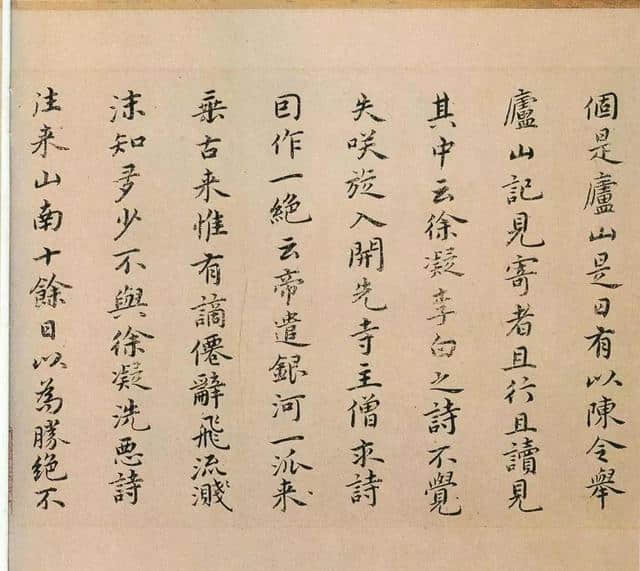 個是廬山是日有以陳令舉
廬山記見寄者且行且讀見
其中云徐凝李白之詩不覺
失咲旋入開先寺主僧求詩
囙作一絶云帝遣銀河一派来
垂古来惟有謫僊辭飛流濺
沫知多少不與徐凝洗惡詩
往来山南十餘日以為勝絶不